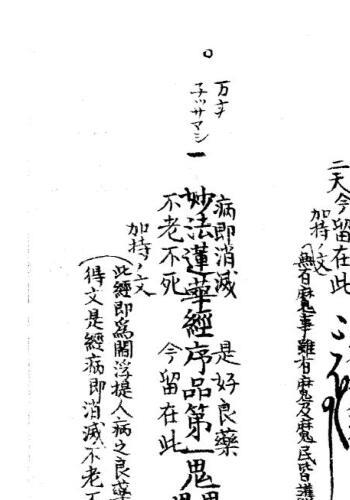 二天今留在此
加持ノ文
無有魔事雖有魔及魔民皆護
万年
子ッサマシ
一
病即消滅 是好良藥
妙法蓮華經序品第一鬼
不老不死 今留在此
加持ノ文
(此經即為閻浮提人病之良藥
得文是經病即消滅不老不